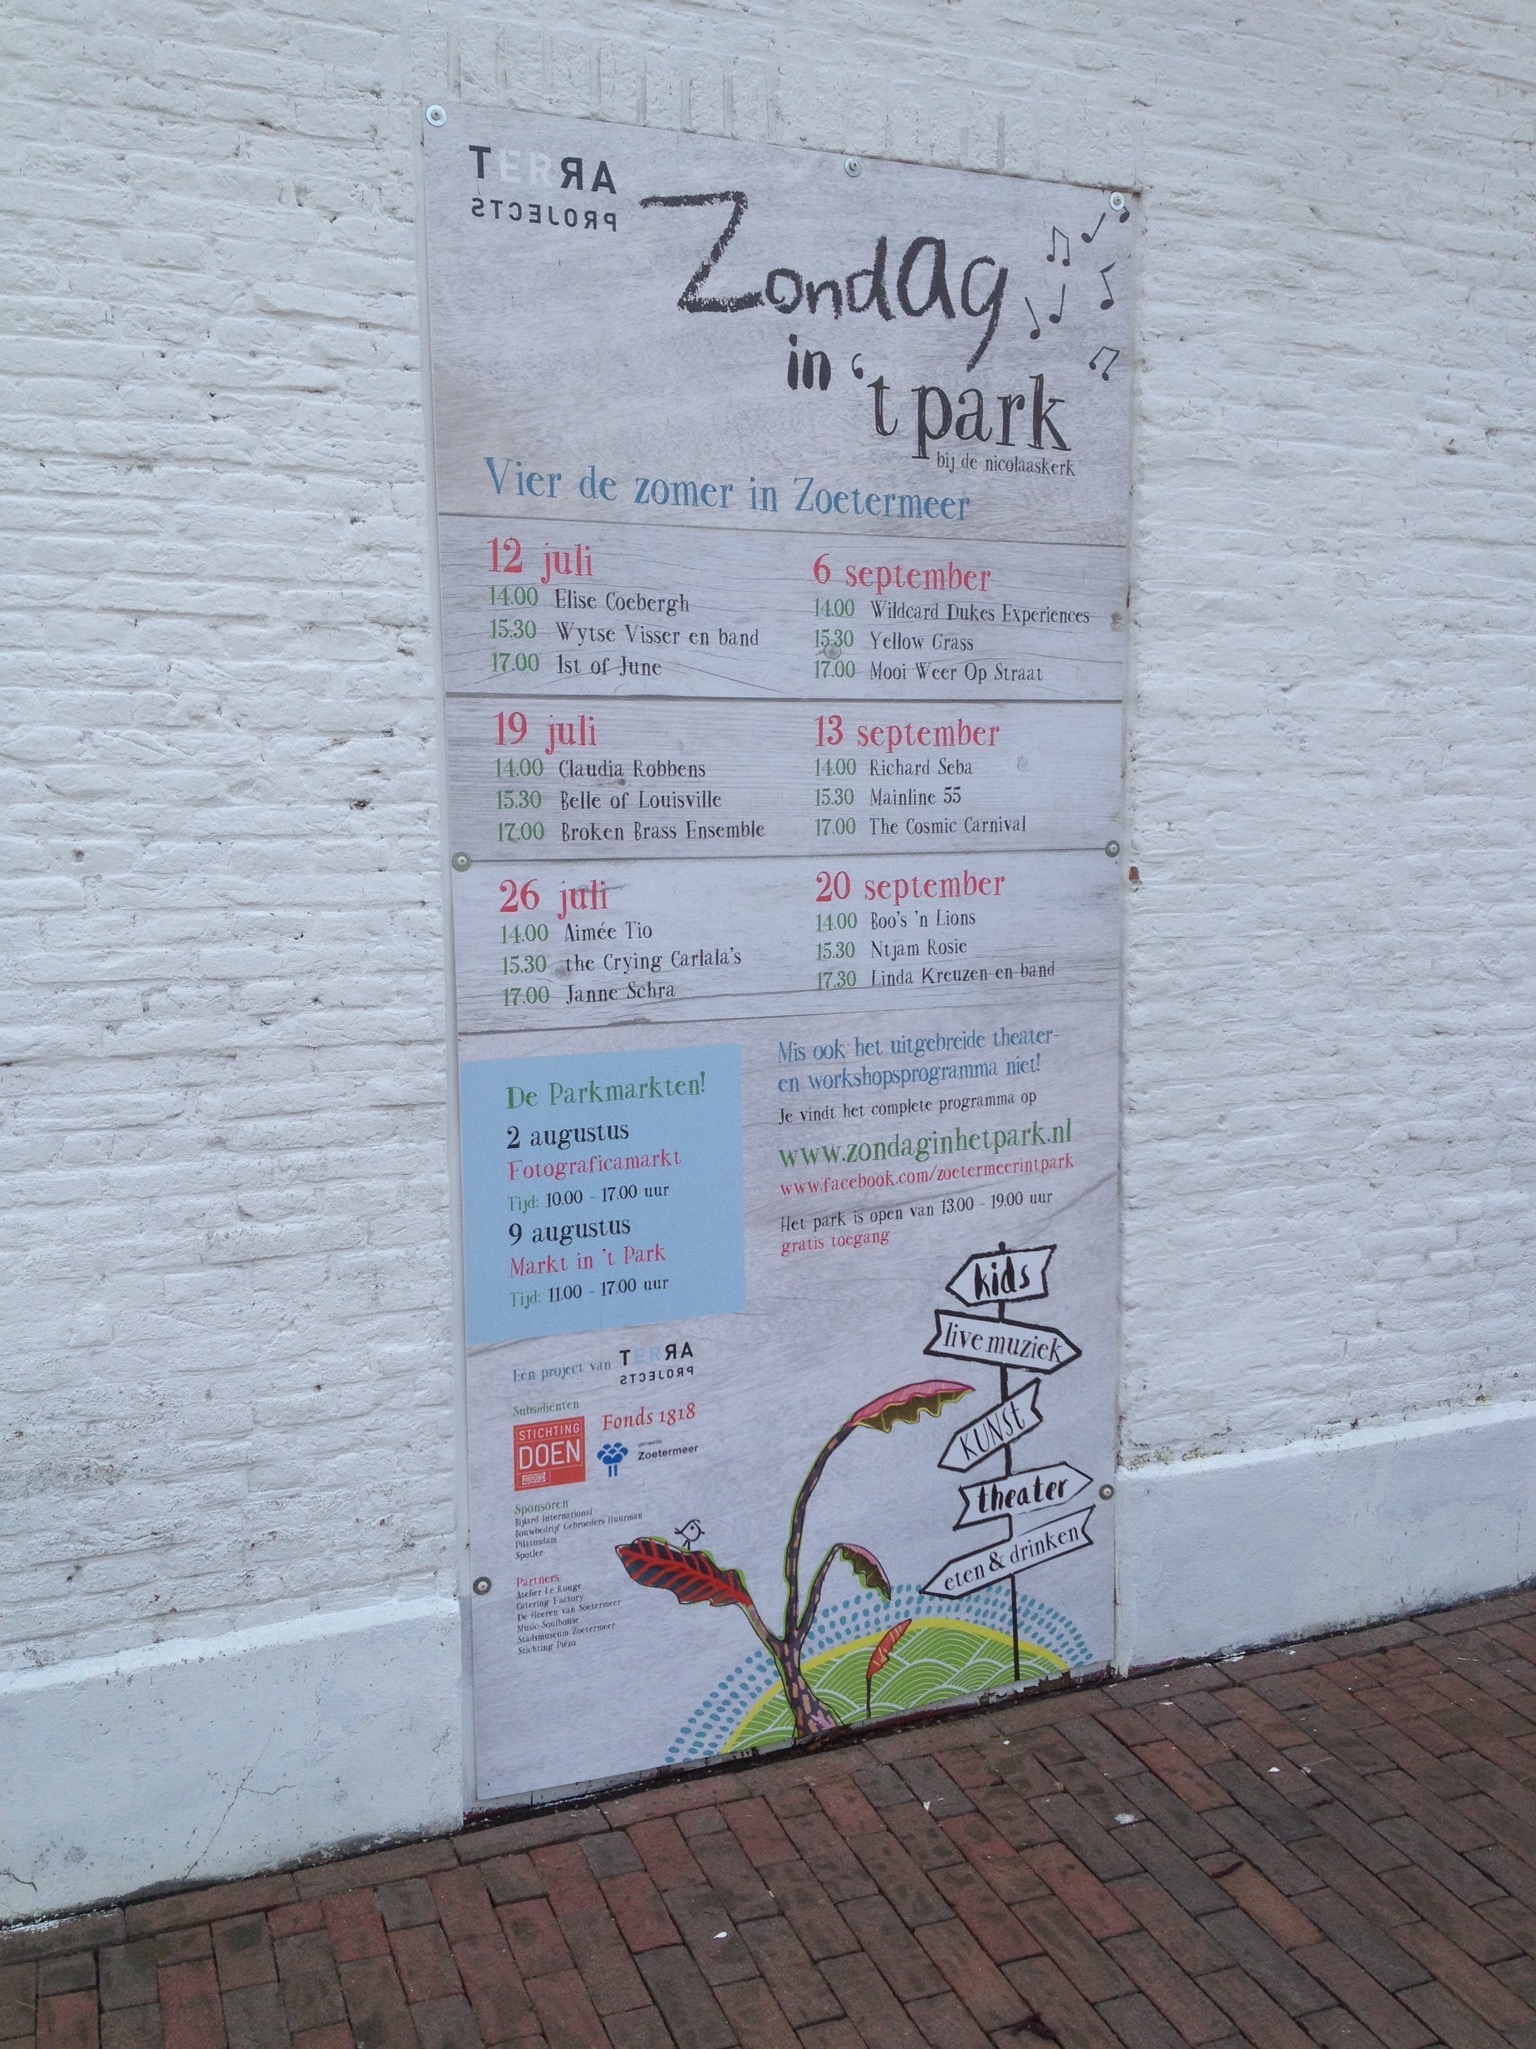 TERRA
PROJECTS
Zondag
in 't park
bij de nicolaaskerk
Vier de zomer in Zoetermeer
12 juli
14.00 Elise Coebergh
15.30 Wytse Visser en band
17.00 1st of June
6 september
14.00 Wildcard Dukes Experiences
15.30 Yellow Grass
17.00 Mooi Weer Op Straat
19 juli
14.00 Claudia Robbens
15.30 Belle of Louisville
17.00 Broken Brass Ensemble
13 september
14.00 Richard Seba
15.30 Mainline 55
17.00 The Cosmic Carnival
26 juli
14.00 Aimée Tio
15.30 the Crying Carlala's
17.00 Janne Schra
20 september
14.00 Boo's 'n Lions
15.30 Ntjam Rosie
17.30 Linda Kreuzen en band
De Parkmarkten!
2 augustus
Fotograficamarkt
Tijd: 10.00 - 17.00 uur
9 augustus
Markt in 't Park
Tijd: 11.00 - 17.00 uur
Mis ook het uitgebreide theater-
en workshopsprogramma niet!
Je vindt het complete programma op
www.zondaginhetpark.nl
www.facebook.com/zoetermeerintpark
Het park is open van 13.00 - 19.00 uur
gratis toegang
Eén project van TERRA
PROJECTS
Subsidiënten
STICHTING
DOEN
Fonds 1818
gemeente
Zoetermeer
Sponsoren
Bijlard International
Bouwbedrijf Gebroeders Huurman
Pilatusdam
Spotler
Partners
Atelier Le Rouge
Catering Factory
De Heeren van Soetermeer
Music Soulhouse
Stadsmuseum Zoetermeer
Stichting Piëzo
kids
live muziek
KUNST
theater
eten & drinken